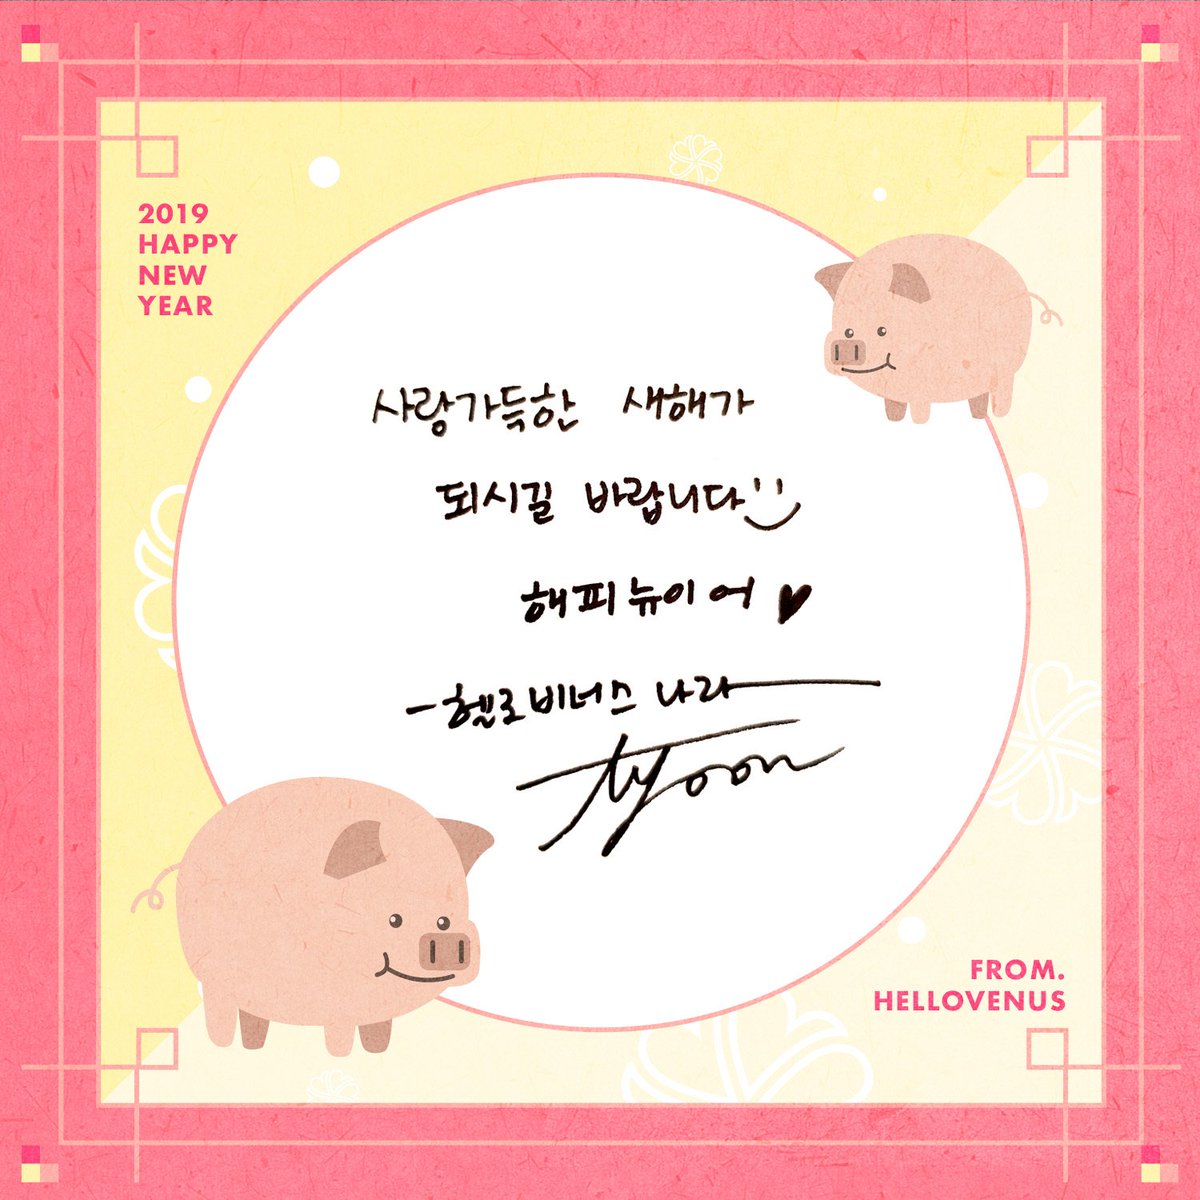 2019
HAPPY
NEW
YEAR
사랑가득한 새해가
되시길 바랍니다
해피뉴이어 ♥
-헬로비너스 나라
FROM.
HELLOVENUS